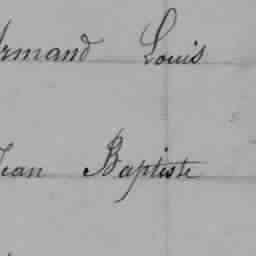 Armand Louis
Jean Baptiste